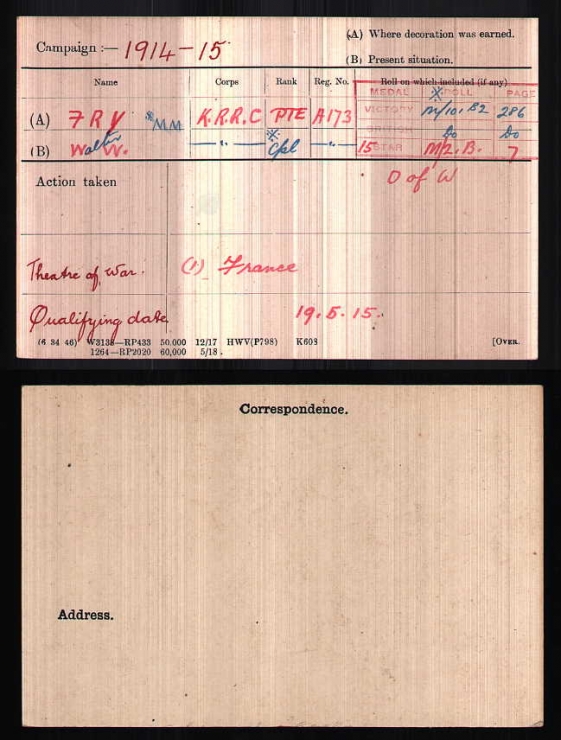 (A) Where decoration was earned.
Campaign :— 1914-15
(B) Present situation.
Name Corps Rank Reg. No. Roll on which included (if any)
MEDAL ROLL PAGE
(A) FRY *MM K.R.R.C PTE A173 VICTORY M/10. B2 286
BRITISH Do Do
(B) Walter W. —"— * Cpl —"— 15 STAR M2. B. 7
Action taken D of W
Theatre of War. (1) France
Qualifying date 19.5.15.
(6 34 46) W3138—RP433 50,000 12/17 HWV(P798) K608 [OVER.
1264—RP2020 60,000 5/18.
Correspondence.
Address.